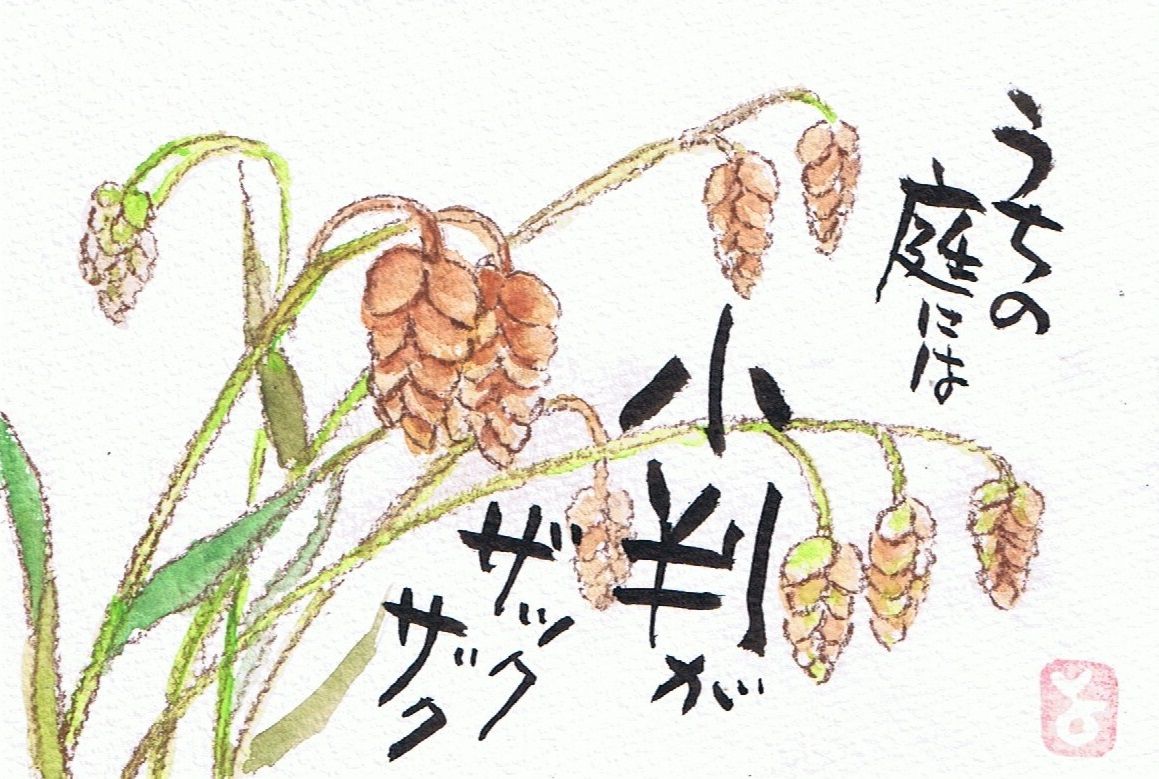 うちの
庭には
小判が
ザック
ザク
と